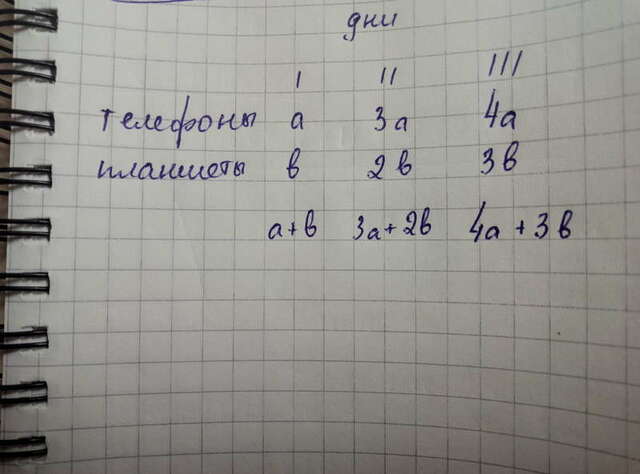 дни
I II III
телефоны а 3а 4а
планшеты в 2в 3в
а+в 3а+2в 4а+3в